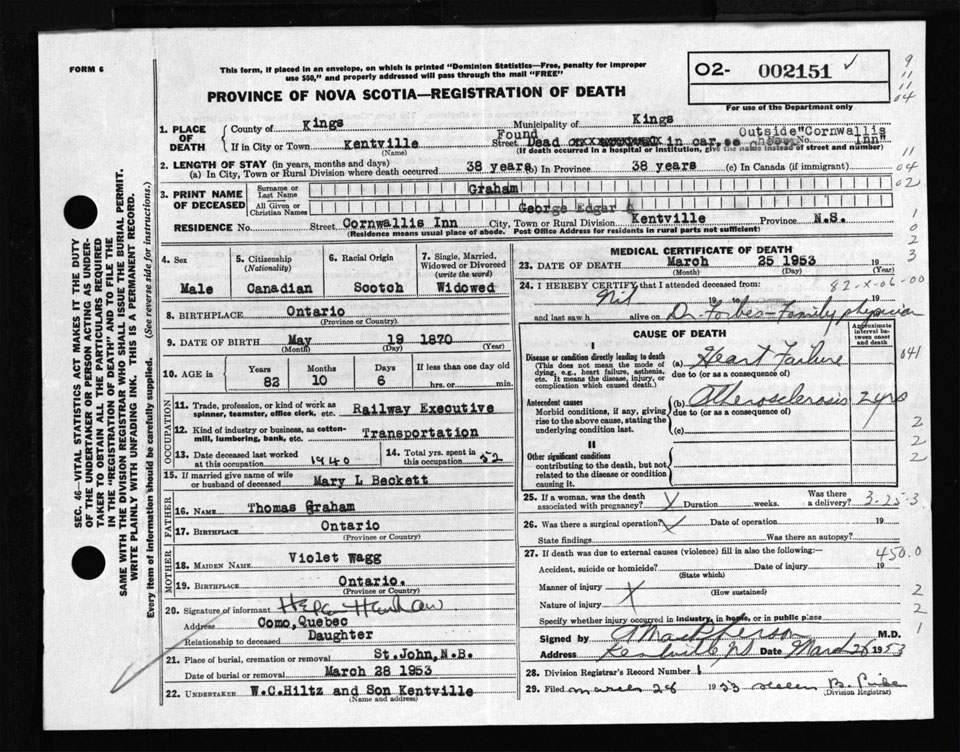 FORM 6
This form, if placed in an envelope, on which is printed "Dominion Statistics—Free, penalty for improper
use $50," and properly addressed will pass through the mail "FREE"
PROVINCE OF NOVA SCOTIA—REGISTRATION OF DEATH
O2- 002151 ✓
For use of the Department only
9
11
11
04
11
04
02
1
0
2
3
1. PLACE OF DEATH
County of Kings Municipality of Kings
If in City or Town Kentville (Name) Street Found Dead in car Outside "Cornwallis Inn"
House No.
(If death occurred in a hospital or institution, give the name instead of street and number)
2. LENGTH OF STAY (in years, months and days)
(a) In City, Town or Rural Division where death occurred 38 years (b) In Province 38 years (c) In Canada (if immigrant)
3. PRINT NAME OF DECEASED
Surname or Last Name Graham
All Given or Christian Names George Edgar G
RESIDENCE No. Street Cornwallis Inn City, Town or Rural Division Kentville Province N.S.
(Residence means usual place of abode. Post Office Address for residents in rural parts not sufficient)
SEC. 46—VITAL STATISTICS ACT MAKES IT THE DUTY
OF THE UNDERTAKER OR PERSON ACTING AS UNDER-
TAKER TO OBTAIN ALL THE PARTICULARS REQUIRED
IN THE "REGISTRATION OF DEATH" AND TO FILE THE
SAME WITH THE DIVISION REGISTRAR WHO SHALL ISSUE THE BURIAL PERMIT.
WRITE PLAINLY WITH UNFADING INK. THIS IS A PERMANENT RECORD.
Every item of information should be carefully supplied. (See reverse side for instructions.)
4. Sex
Male
5. Citizenship
(Nationality)
Canadian
6. Racial Origin
Scotch
7. Single, Married,
Widowed or Divorced
(write the word)
Widowed
8. BIRTHPLACE Ontario
(Province or Country)
9. DATE OF BIRTH May 19 1870
(Month) (Day) (Year)
10. AGE in
Years Months Days If less than one day old
82 10 6 hrs. or min.
OCCUPATION
11. Trade, profession, or kind of work as
spinner, teamster, office clerk, etc. Railway Executive
12. Kind of industry or business, as cotton-
mill, lumbering, bank, etc. Transportation
13. Date deceased last worked
at this occupation 1940
14. Total yrs. spent in
this occupation 52
15. If married give name of wife
or husband of deceased Mary L Beckett
FATHER
16. NAME Thomas Graham
17. BIRTHPLACE Ontario
(Province or Country)
MOTHER
18. MAIDEN NAME Violet Wagg
19. BIRTHPLACE Ontario.
(Province or Country)
20. Signature of informant
Address Como, Quebec
Relationship to deceased Daughter
21. Place of burial, cremation or removal St.John,N.B.
Date of burial or removal March 28 1953
22. UNDERTAKER W.C.Hiltz and Son Kentville
(Name and address)
MEDICAL CERTIFICATE OF DEATH
23. DATE OF DEATH March 25 1953 19
(Month) (Day) (Year)
24. I HEREBY CERTIFY that I attended deceased from: 82-X-06-00
Nil 19 to 19
and last saw h alive on Dr Forbes - Family physician
CAUSE OF DEATH
Approximate interval between onset and death
I
Disease or condition directly leading to death
(This does not mean the mode of
dying, e.g., heart failure, asthenia,
etc. It means the disease, injury, or
complication which caused death.)
(a) Heart Failure
041
due to (or as a consequence of)
Antecedent causes
Morbid conditions, if any, giving
rise to the above cause, stating the
underlying condition last.
(b) Atherosclerosis 2 yrs
due to (or as a consequence of)
(c)
2
2
2
II
Other significant conditions
contributing to the death, but not
related to the disease or condition
causing it.
25. If a woman, was the death
associated with pregnancy? X Duration weeks. Was there
a delivery? 3-25-3
26. Was there a surgical operation? X Date of operation 19
State findings Was there an autopsy?
27. If death was due to external causes (violence) fill in also the following: 450.0
Accident, suicide or homicide? Date of injury 19
(State which)
Manner of injury X
(How sustained)
2
Nature of injury
2
Specify whether injury occurred in industry, in home, or in public place
1
Signed by M.D.
Address Kentville NS Date March 28 1953
28. Division Registrar's Record Number 1
29. Filed March 28 1953 Helen B.
(Division Registrar)